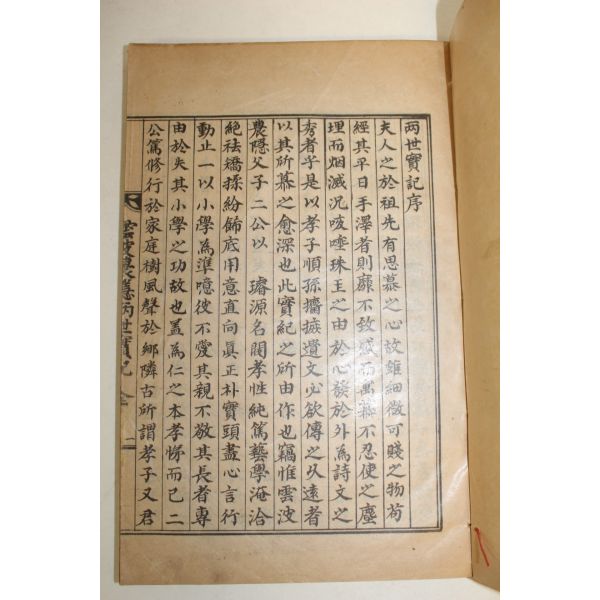 兩世實記序
夫人之於祖先有思慕之心故雖細微可賤之物苟
經其平日手澤者則靡不致感而寓慕不忍使之塵
理而烟滅況咳唾珠玉之由於心發於外為詩文之
秀者乎是以孝子順孫擩摭遺文必欲傳之久遠者
以其所慕之愈深也此實紀之所由作也竊惟雲波
農隱父子二公以 璿源名閥孝性純篤藝學淹洽
絶祛矯揉紛飾底用意直向眞正朴實頭盡心言行
動止一以小學為準噫彼不愛其親不敬其長者專
由於失其小學之功故也盖為仁之本孝悌而已二
公篤修行於家庭樹風聲於鄉隣古所謂孝子又君
雲波農隱兩世實記 全 一